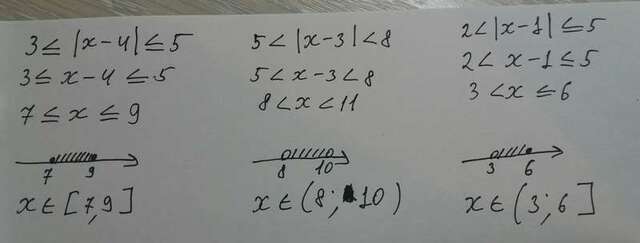 3 ≤ |x-4| ≤ 5
3 ≤ x-4 ≤ 5
7 ≤ x ≤ 9
7 9
x ∈ [7,9]
5 < |x-3| < 8
5 < x-3 < 8
8 < x < 11
8 10
x ∈ (8; 10)
2 < |x-1| ≤ 5
2 < x-1 ≤ 5
3 < x ≤ 6
3 6
x ∈ (3; 6]